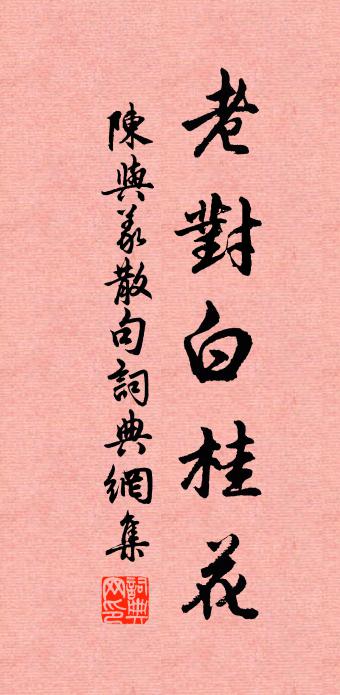 老對白桂花
陳與義散句詞典網集
詞典網印